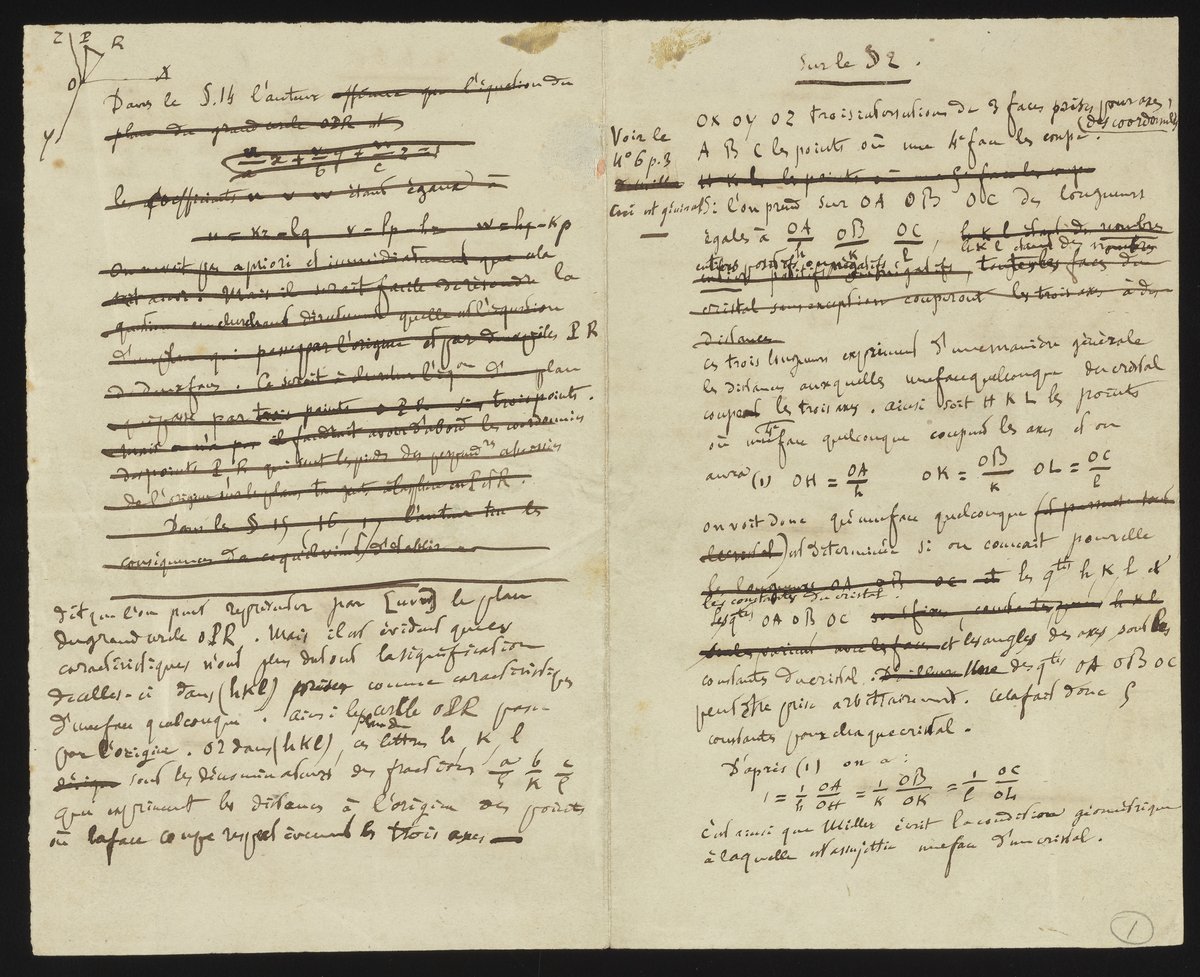 Z P R
O X
Y
Dans le §.14 l'auteur affirme que l'équation du
plan du grand cercle OPR est
u/a x + v/b y + w/c z = 1
les coefficients u v w étant égaux à
u = kr - lq v = lp - hr w = hq - kp
On ne voit pas a priori et immédiatement que cela
soit ainsi. Mais il serait facile de résoudre la
question en cherchant directement quelle est l'équation
d'un plan qui passe par l'origine et par deux pôles P R
de deux faces. Ce serait à chercher l'éqon d'un plan
qui passe par trois points O P R trois points.
mais il faudrait avoir d'abord les coordonnées
des points P R qui sont les pieds des perpendres abaissées
de l'origine sur le plan tangent à la sphère en P et R.
Dans les § 15, 16, 17 l'auteur tire les
conséquences de ce qu'il vient d'établir
dit que l'on peut représenter par [uvw] le plan
du grand cercle OPR. Mais il est évident que ces
caractéristiques n'ont plus du tout la signification
de celles-ci dans (hkl) prises comme caractéristiques
d'une face quelconque. Ainsi le cercle OPR passe
plan du
par l'origine. Or dans (hkl), ces lettres h, k, l
désigne sont les dénominateurs des fractions a/h b/k c/l
qui expriment les distances à l'origine des points
où la face coupe respectivement les trois axes —
Sur le § 2.
OX OY OZ trois intersections de 3 faces prises pour axes
(des coordonnées
A B C les points où une 4e face les coupe.
Voir le
4° 6 p. 3
Miller
H K L les points où une 5e face les coupe
Ceci est général
Si l'on prend sur OA OB OC des longueurs
égales à OA/h OB/k OC/l, h k l étant des nombres
h k l étant des nombres
entiers positifs ou négatifs
entiers positifs ou négatifs, toutes les faces du
cristal sans exception couperont les trois axes à des
distances
ces trois longueurs expriment d'une manière générale
les distances auxquelles une face quelconque du cristal
coupent les trois axes. Ainsi soit H K L les points
où une face quelconque coupent les axes et on
aura (1) OH = OA/h OK = OB/k OL = OC/l
on voit donc qu'une face quelconque
le cristal) est déterminée si on connait pour elle
les longueurs OA OB OC et les qtés h, k, l et
les constantes du cristal.
Les qtés OA OB OC sont cinq constantes h k l
seules varient avec les faces et les angles des axes sont les
constantes du cristal. D'ailleurs Une des qtés OA OB OC
peut être prise arbitrairement. Cela fait donc 5
constantes pour chaque cristal.
D'après (1) on a :
1 = 1/h OA/OH = 1/k OB/OK = 1/l OC/OL
C'est ainsi que Miller écrit la condition géométrique
à laquelle est assujettie une face d'un cristal.
1